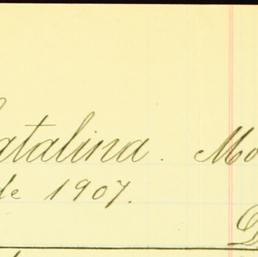 Catalina. Mo
de 1907.
D